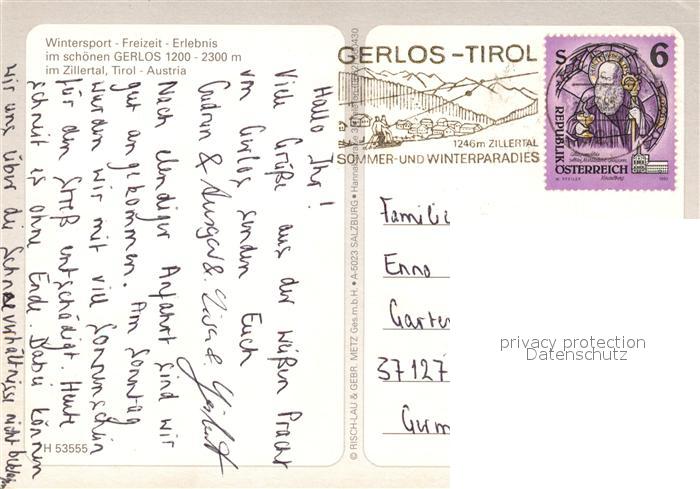 Wintersport - Freizeit - Erlebnis
im schönen GERLOS 1200 - 2300 m
im Zillertal, Tirol - Austria
Hallo Ihr!
Viele Grüße aus der weißen Pracht
von Gerlos senden Euch
Gudrun &
Nach elendiger Anfahrt sind wir
gut angekommen. Am Sonntag
wurden wir mit viel Sonnenschein
für den Streß entschädigt. Heute
schneit es ohne Ende. Dabei können
wir uns über die Schneeverhältnisse nicht
H 53555
© RISCH-LAU & GEBR. METZ Ges.m.b.H. • A-5023 SALZBURG •
GERLOS-TIROL
1246m ZILLERTAL
SOMMER- UND WINTERPARADIES
S 6
REPUBLIK
ÖSTERREICH
Familie
Enno
Garten
37127
Gum
privacy protection
Datenschutz